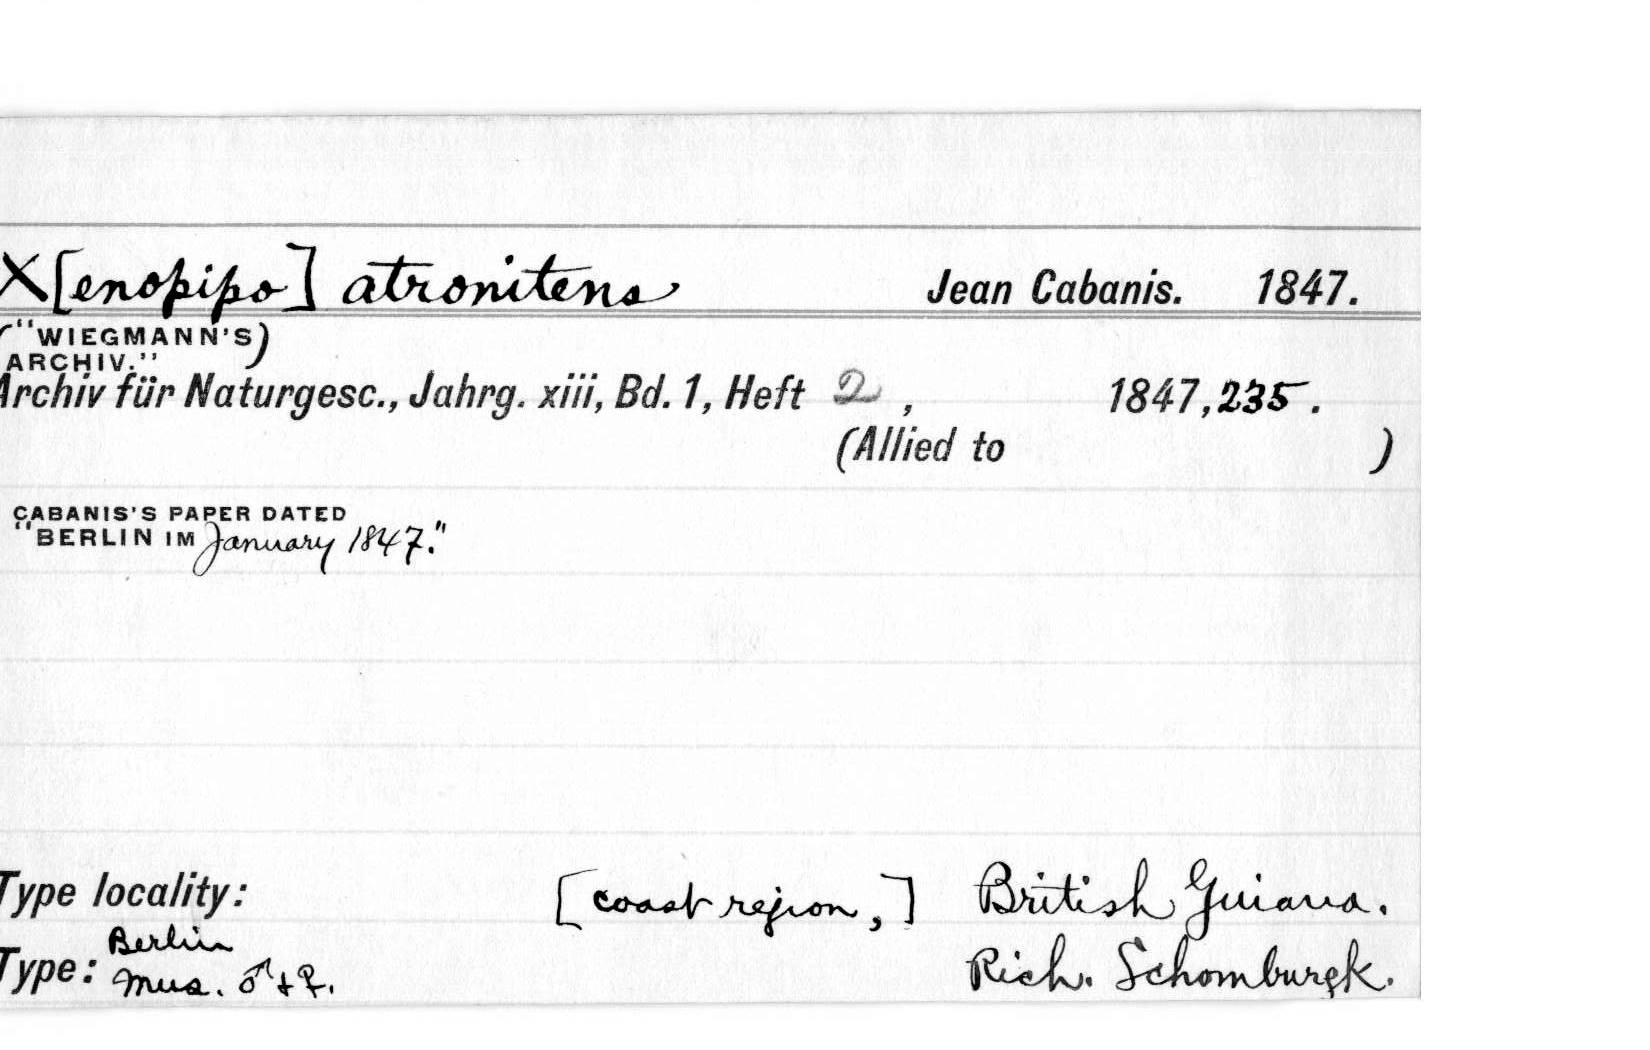 X[enopipo] atronitens Jean Cabanis. 1847.
("WIEGMANN'S)
ARCHIV."
Archiv für Naturgesc., Jahrg. xiii, Bd. 1, Heft 2, 1847, 235.
(Allied to )
CABANIS'S PAPER DATED
"BERLIN IM January 1847."
Type locality: [coast region,] British Guiana.
Type: Berlin Mus. ♂ + ♀. Rich. Schomburgk.